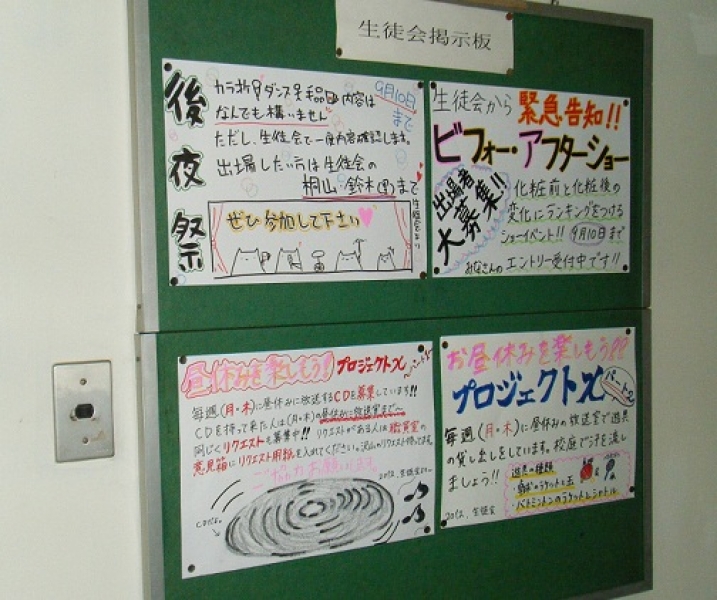 生徒会掲示板
後夜祭
9月10日
まで
内容は
なんでも構いません
ただし、生徒会で一度内容確認します。
出場したい方は生徒会の
桐山・鈴木(里)まで
生徒会より
ぜひ参加して下さい
生徒会から 緊急告知!!
ビフォー・アフターショー
出場者
大募集!!
化粧前と化粧後の
変化にランキングをつける
ショーイベント!! 9月10日まで
みなさんのエントリー受付中です!!
昼休みを楽しもう! プロジェクトX
毎週(月・木)に昼休みに放送するCDを募集しています!!
CDを持って来た人は(月・木)の昼休みに放送室まで〜
同じくリクエストも募集中!! リクエストがある人は職員室の
意見箱にリクエスト用紙を入れてください。沢山のリクエスト待ってます。
ご協力お願いします。
CDだよ。
お昼休みを楽しもう!!
プロジェクトX
パート2
毎週(月・木)に昼休みの放送室で遊具
の貸し出しをしています。校庭で汗を流し
ましょう!!
遊具の種類
・バトミントンのラケットとシャトル
生徒会